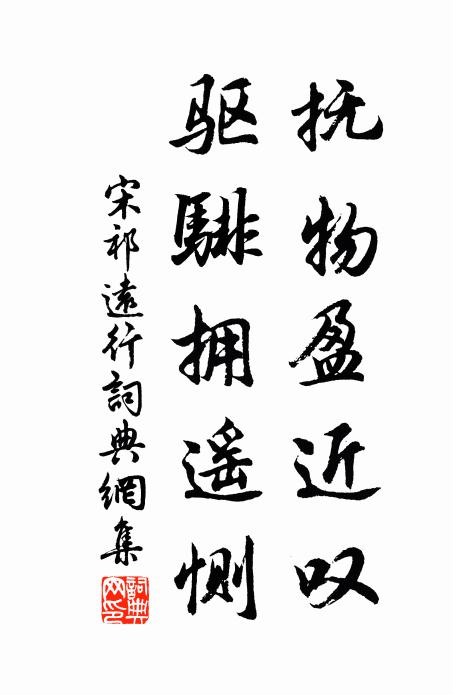 抚物盈近叹
驱騑拥遥恻
宋祁遠行詞典網集
詞典网印